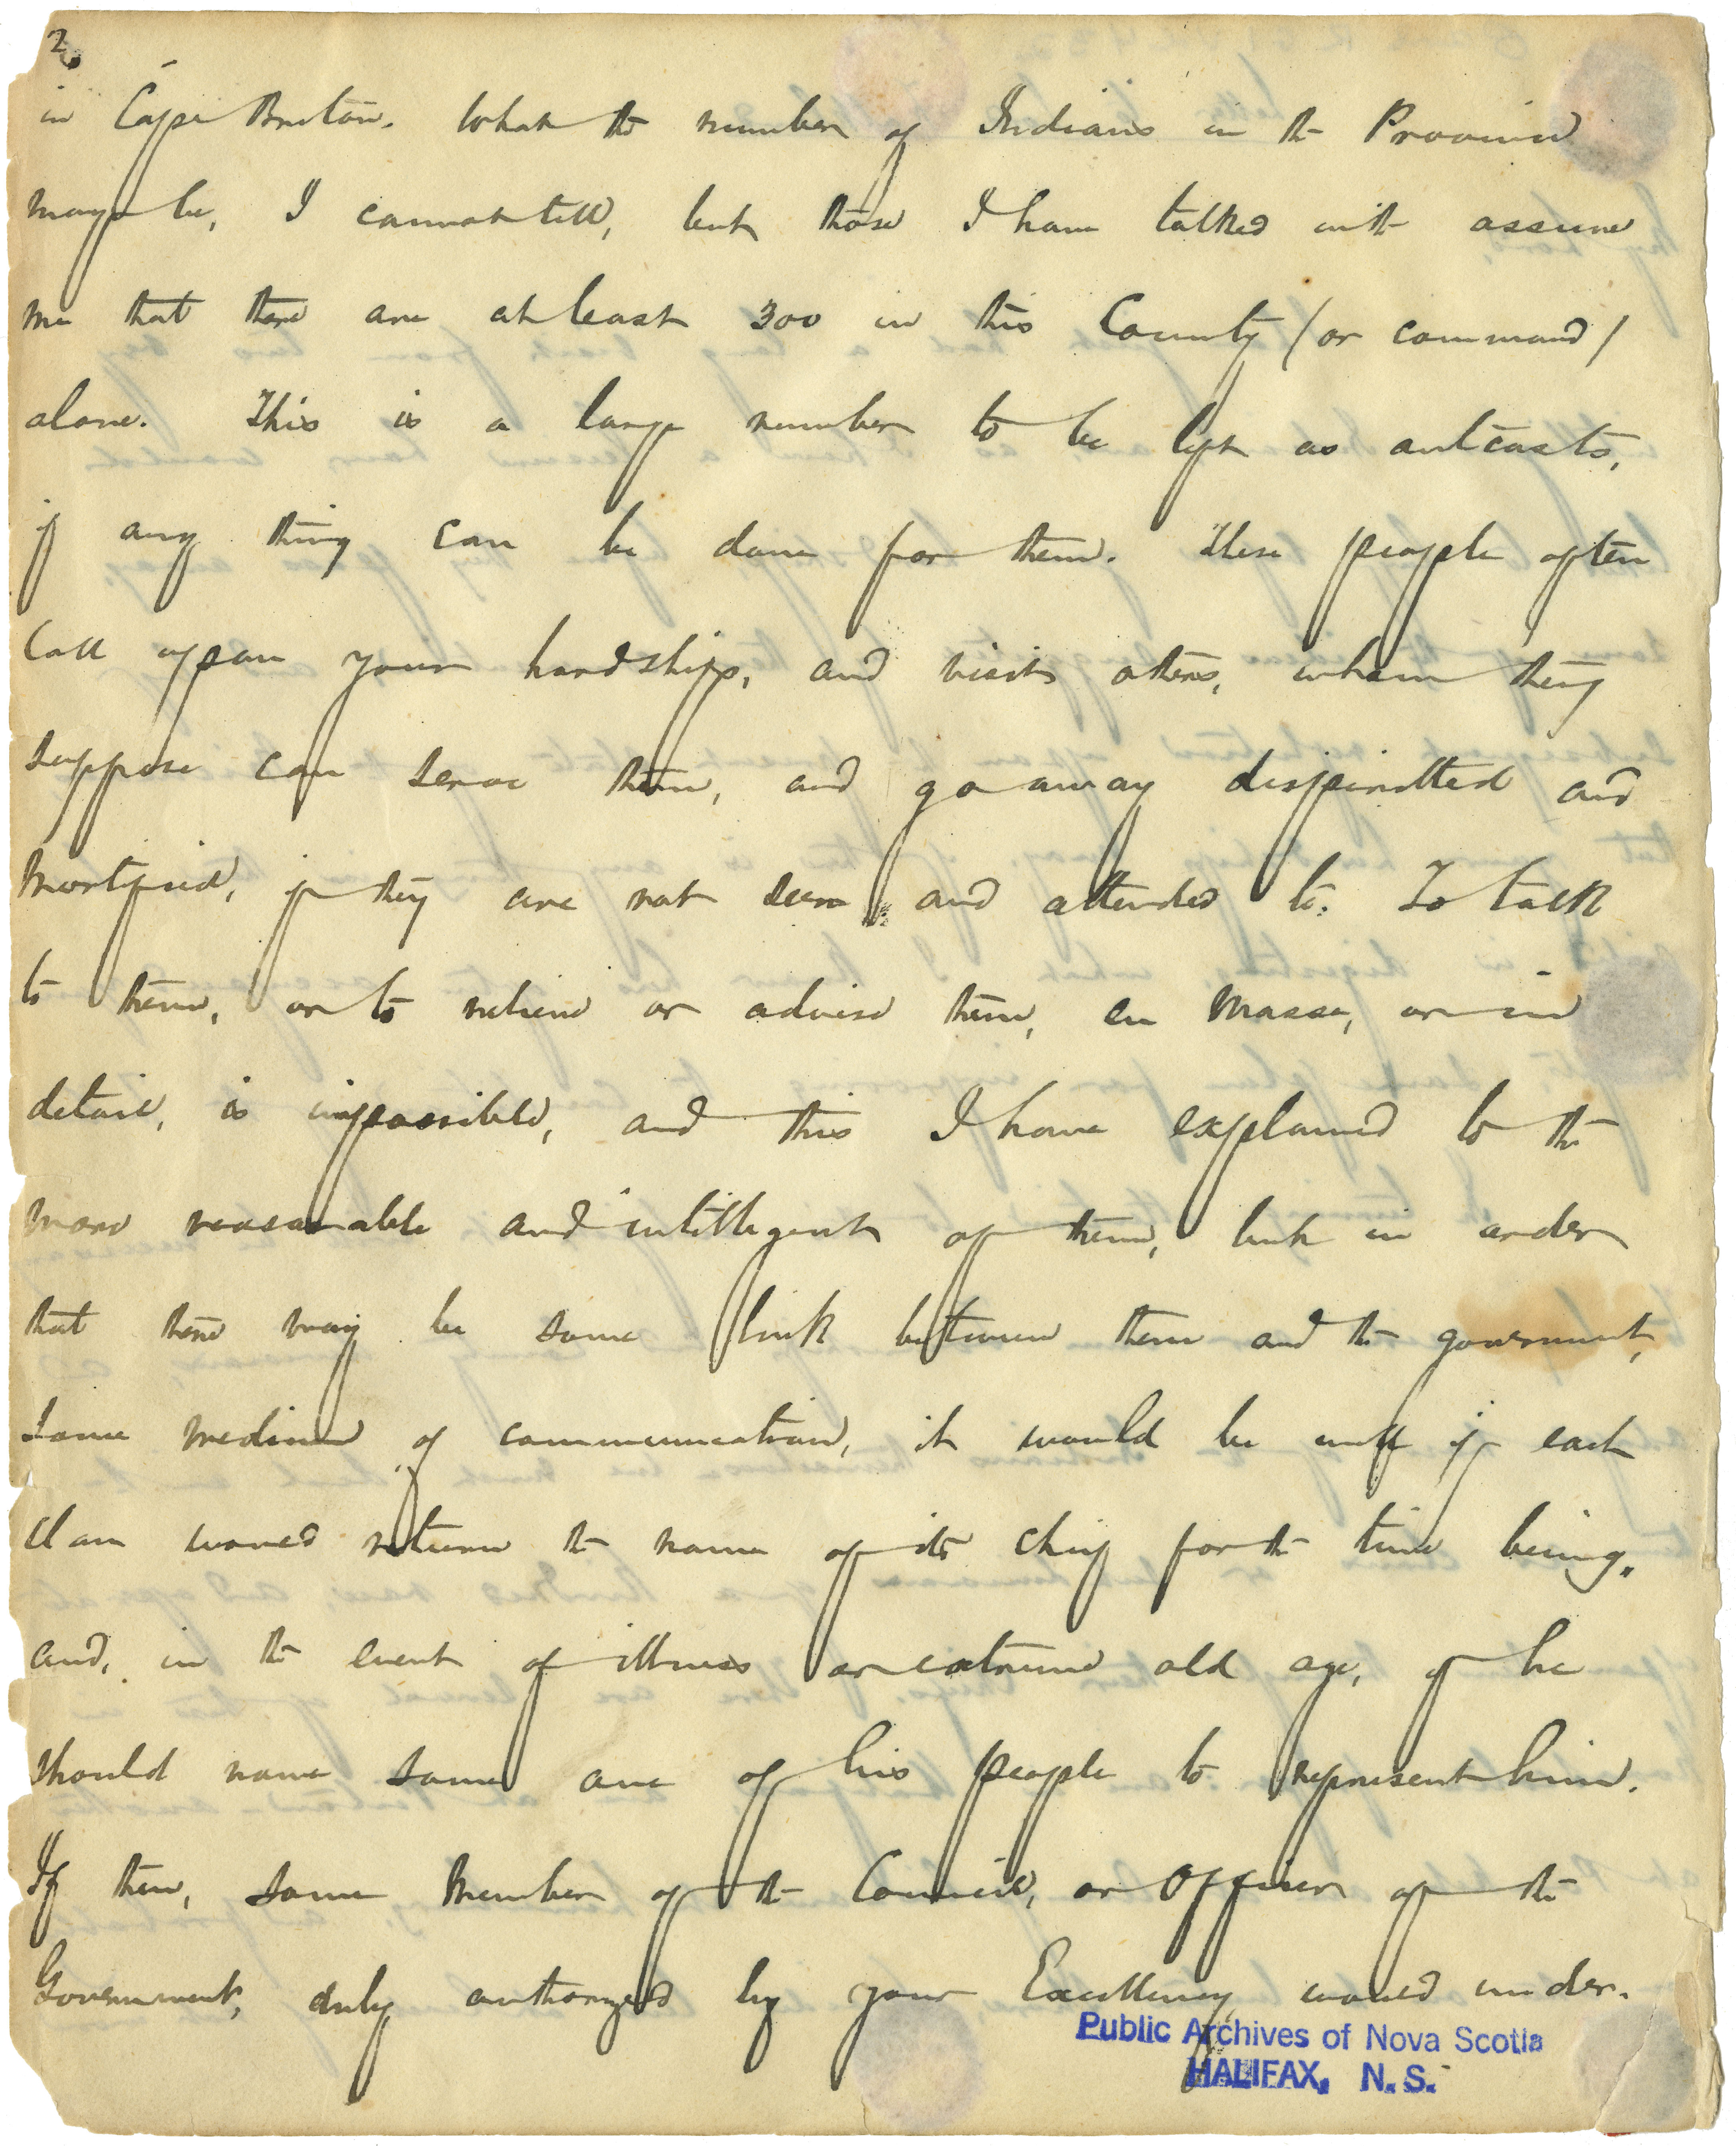 2
in Cape Breton. What the number of Indians in the Province
may be, I cannot tell, but those I have talked with assure
me that there are at least 300 in this County (or command)
alone. This is a large number to be left as outcasts,
if any thing can be done for them. These people often
call upon your hardships, and visit others, whom they
suppose can serve them, and go away dispiritted and
mortified, if they are not seen and attended to. To talk
to them, or to relieve or advise them, en masse, or in
detail, is impossible, and this I have explained to the
more reasonable and intelligent of them, but in order
that there may be some link between them and the government,
some medium of communication, it would be well if each
clan would return the name of its chief for the time being,
and, in the event of illness or extreme old age, if he
should name some one of his people to represent him.
If then, some Member of the Council, or Officer of the
Government, duly authorized by your Excellency would under-
Public Archives of Nova Scotia
HALIFAX, N.S.